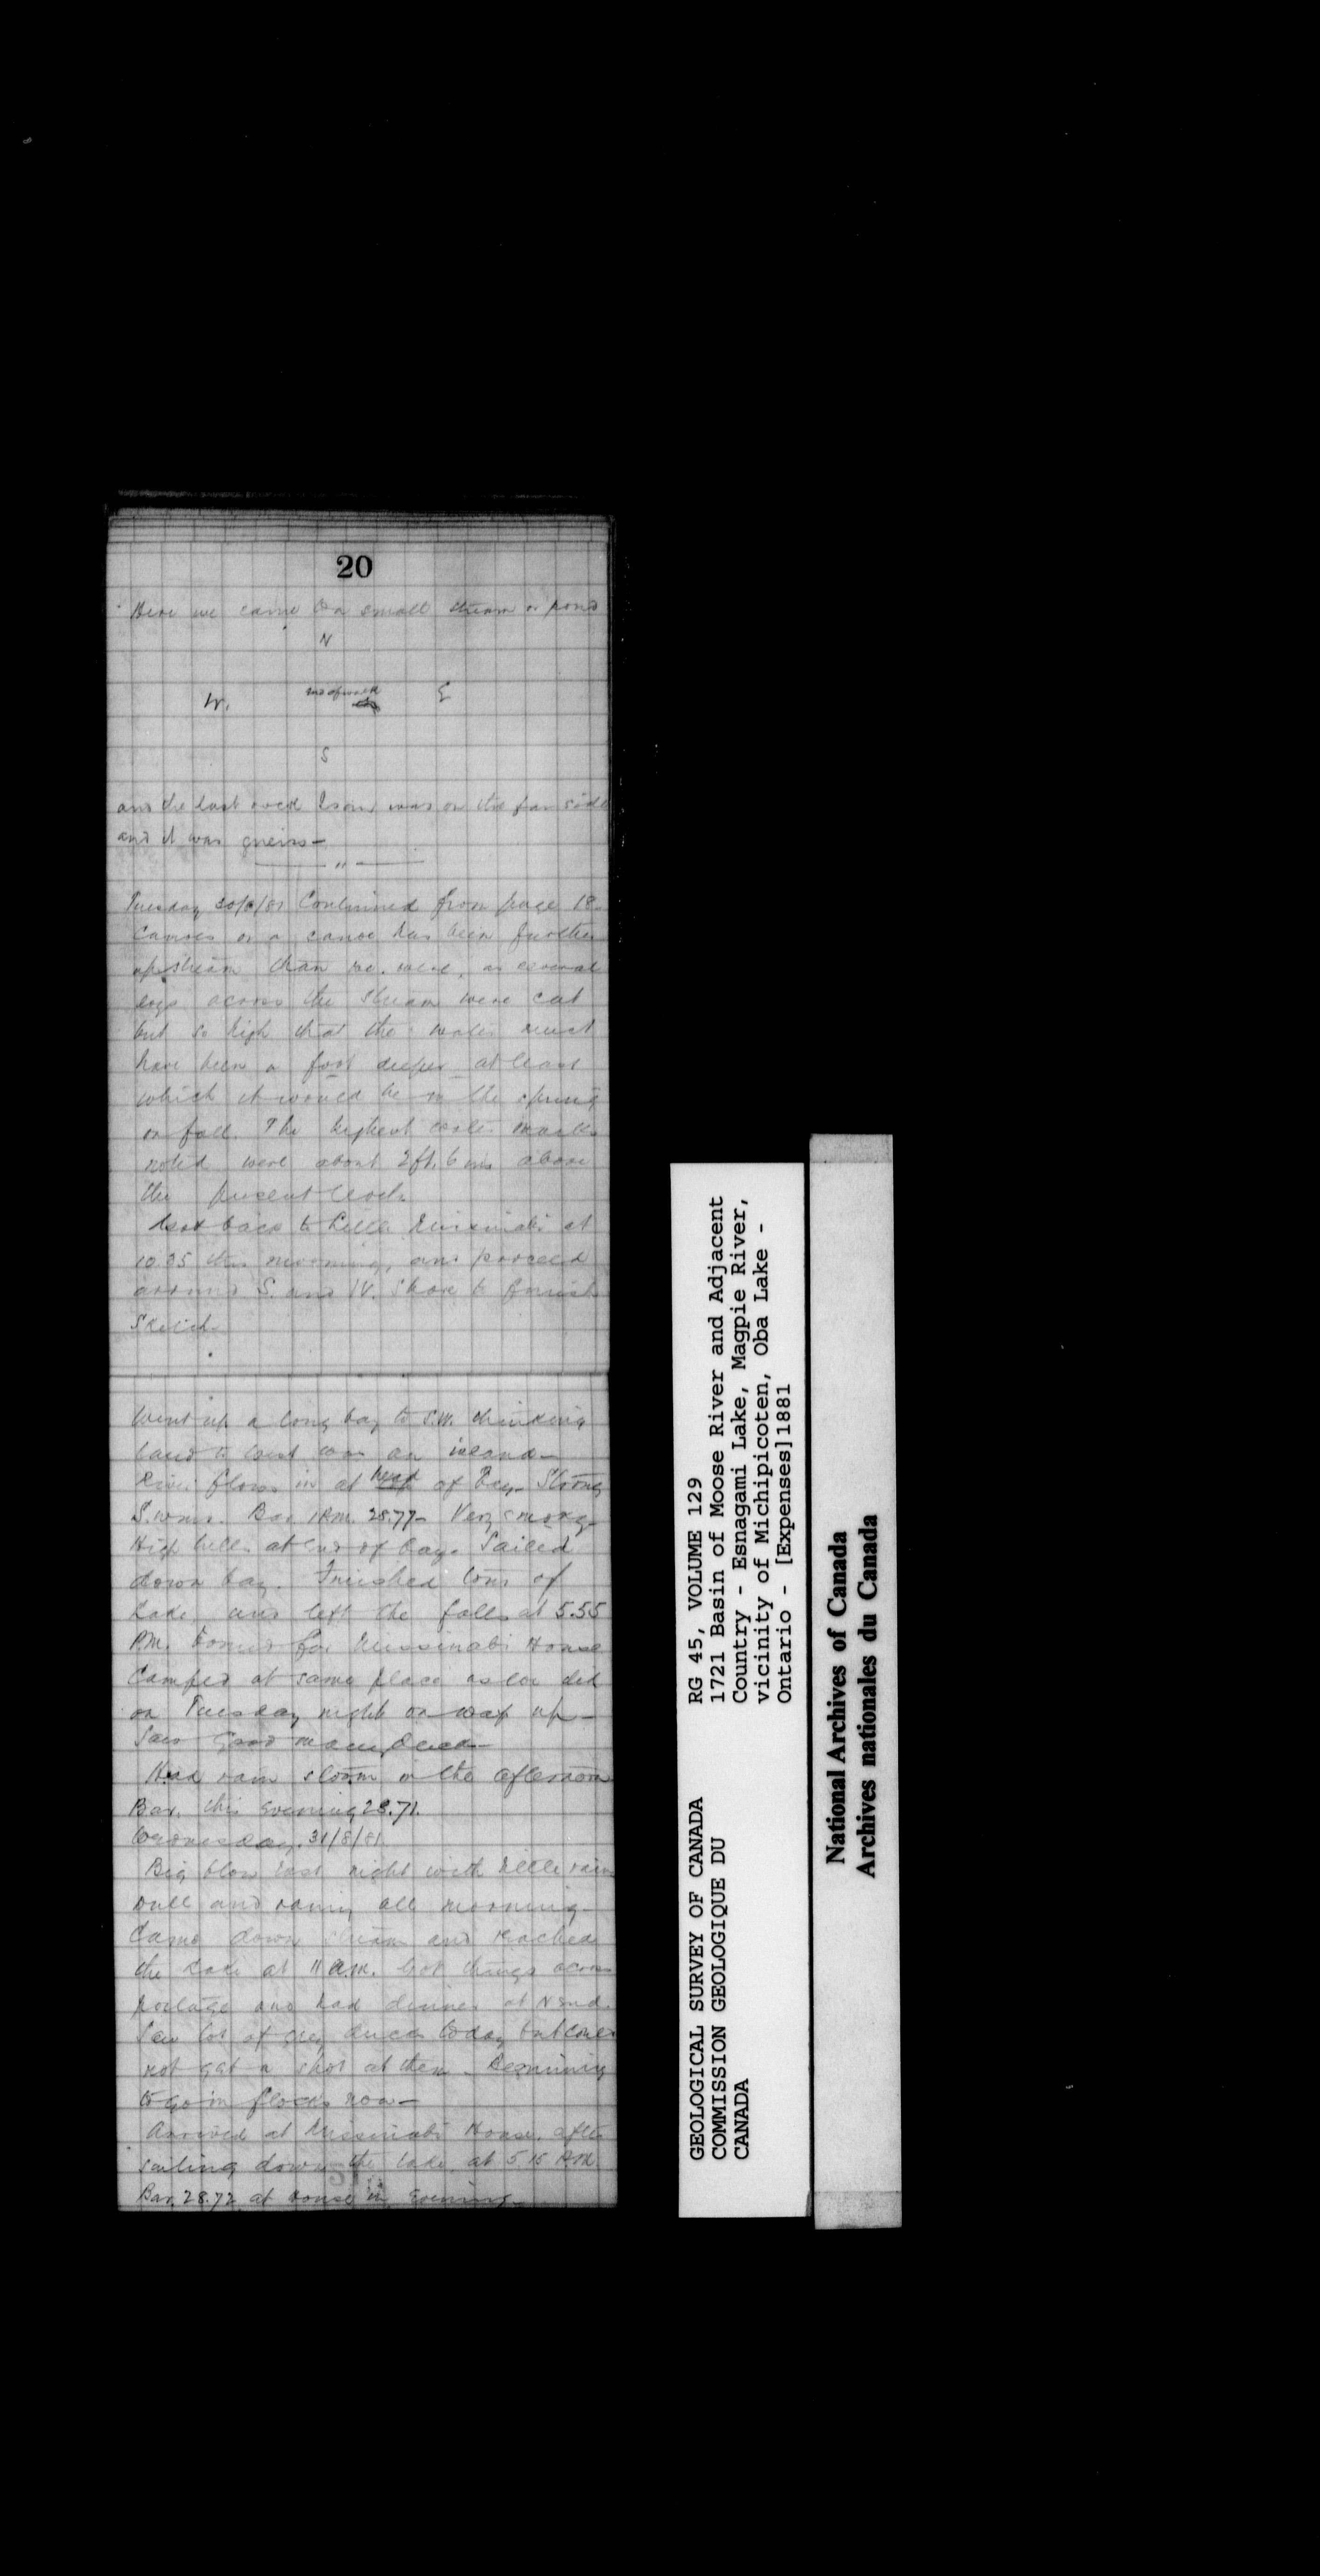 20
Here we came to a small stream or pond
N
W. end of walk E
S
and the last rock I saw, was on the far side
and it was gneiss —
— " —
Tuesday 30/8/81 Continued from page 18.
Canoes or a canoe has been further
up stream than we were, as several
logs across the stream were cut
but so high that the water must
have been a foot deeper at least
which it would be in the spring
or fall. The highest water marks
noted were about 2 ft. 6 ins above
the present level.
Got back to Little Missinabi at
10.35 this morning, and proceed
around S. and W. Shore to finish
Sketch.
Went up a long bay to S.W. thinking
land to west was an island —
River flows in at head of bay. Strong
S. wind. Bar 28.77 — Very smoky —
High hills at end of bay. Sailed
down bay. Finished tour of
Lake, and left the falls at 5.55
P.M. bound for Missinabi House
Camped at same place as we did
on Tuesday night on way up —
Saw good many ducks —
Had rain storm in the afternoon
Bar. this evening 28.71.
Wednesday. 31/8/81.
Big blow last night with little rain
Dull and rainy all morning —
Came down stream and reached
the Lake at 11 a.m. Got things across
portage and had dinner at N end.
Saw lot of grey ducks today but could
not get a shot at them — Beginning
to go in flocks now —
Arrived at Missinabi House, after
sailing down the lake, at 5.15 P.M.
Bar. 28.72 at house in evening —
GEOLOGICAL SURVEY OF CANADA
COMMISSION GEOLOGIQUE DU
CANADA
RG 45, VOLUME 129
1721 Basin of Moose River and Adjacent
Country - Esnagami Lake, Magpie River,
vicinity of Michipicoten, Oba Lake -
Ontario - [Expenses]1881
National Archives of Canada
Archives nationales du Canada